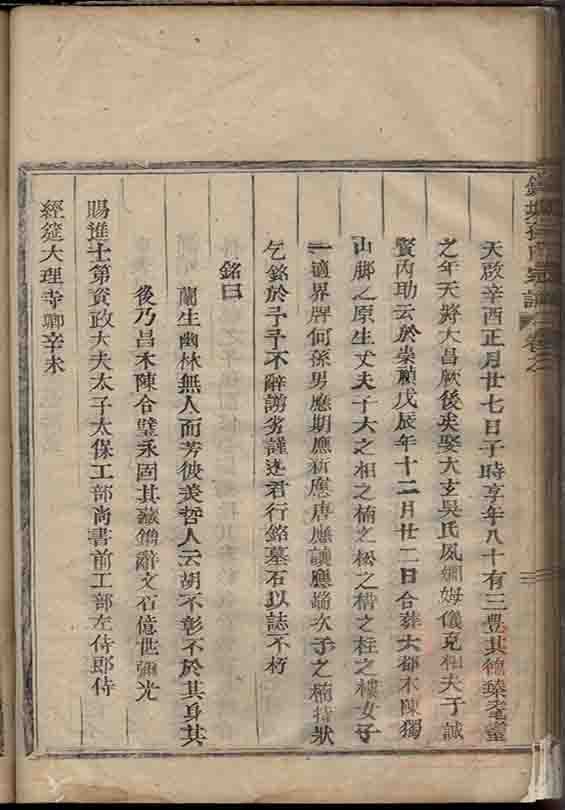 宗譜 卷之
天啟辛酉正月廿七日子時享年八十有三豊其德臻耄耋
之年天將大昌厥後矣娶大支吳氏夙嫻姆儀克相夫子誠
賢內助云於崇禎戊辰年十二月廿二日合葬大都木陳獨
山脚之原生丈夫子六之相之楠之松之楷之柱之樓女子
一適界牌何孫男應期應新應唐應議應瑞次子之楠持狀
乞銘於予予不辭謭劣謹述君行銘墓石以誌不朽
銘曰
蘭生幽林無人而芳彼美哲人云胡不彰不於其身其
後乃昌木陳合璧永固其藏鐫辭文石億世彌光
賜進士第資政大夫太子太保工部尚書前工部左侍郎侍
經筵大理寺卿辛未